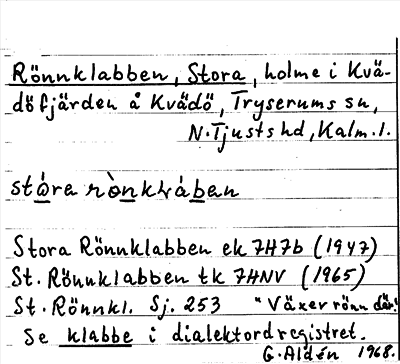 Rönnklabben, Stora, holme i Kvä-
döfjärden å Kvädö, Tryserums sn,
N. Tjusts hd, Kalm. l.
Stora Rönnklabben ek 7H7b (1947)
St. Rönnklabben tk 7HNV (1965)
St. Rönnkl. Sj. 253 "Växer rönn där."
Se klabbe i dialektordregistret.
G. Aldén 1968.